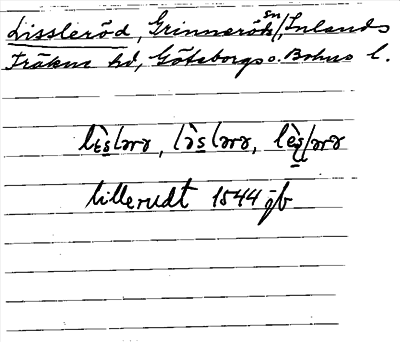 Lissleröd, Grinneröds sn, Inlands
Fräkne hd, Göteborgs o. Bohus l.
lɛ̀slərɤ, lə̀slərɤ, lèslərɤ
lillerudt 1544 jb